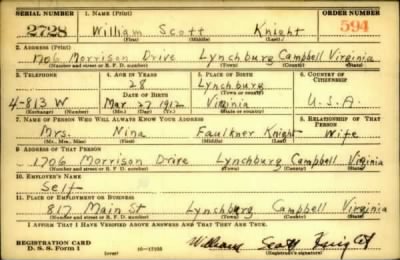 SERIAL NUMBER 1. NAME (Print) ORDER NUMBER
2728 William Scott Knight 594
(First) (Middle) (Last)
2. ADDRESS (Print)
1706 Morrison Drive Lynchburg Campbell Virginia
(Number and street or R. F. D. number) (Town) (County) (State)
3. TELEPHONE 4. AGE IN YEARS 5. PLACE OF BIRTH 6. COUNTRY OF CITIZENSHIP
28 Lynchburg
DATE OF BIRTH (Town or county)
4-813 W Mar. 27 1912 Virginia U.S.A.
(Exchange) (Number) (Mo.) (Day) (Yr.) (State or country)
7. NAME OF PERSON WHO WILL ALWAYS KNOW YOUR ADDRESS 8. RELATIONSHIP OF THAT PERSON
Mrs. Nina Faulkner Knight Wife
(Mr., Mrs., Miss) (First) (Middle) (Last)
9. ADDRESS OF THAT PERSON
1706 Morrison Drive Lynchburg Campbell Virginia
(Number and street or R. F. D. number) (Town) (County) (State)
10. EMPLOYER'S NAME
Self
11. PLACE OF EMPLOYMENT OR BUSINESS
817 Main St Lynchburg Campbell Virginia
(Number and street or R. F. D. number) (Town) (County) (State)
I AFFIRM THAT I HAVE VERIFIED ABOVE ANSWERS AND THAT THEY ARE TRUE.
REGISTRATION CARD William Scott Knight
D. S. S. Form 1 (over) (Registrant's signature)